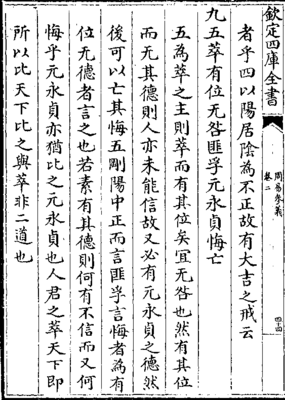 欽定四庫全書
周易參義
卷二
四十四
者乎四以陽居陰為不正故有大吉之戒云
九五萃有位无咎匪孚元永貞悔亡
五為萃之主則萃而有其位矣宜无咎也然有其位
而无其德則人亦未能信故又必有元永貞之德然
後可以亡其悔五剛陽中正而言匪孚言悔者為有
位无德者言之也若素有其德則何有不信而又何
悔乎元永貞亦猶比之元永貞也人君之萃天下即
所以比天下比之與萃非二道也